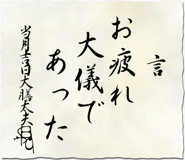 言
お疲れ
大儀で
あった
当月吉日大膳太夫